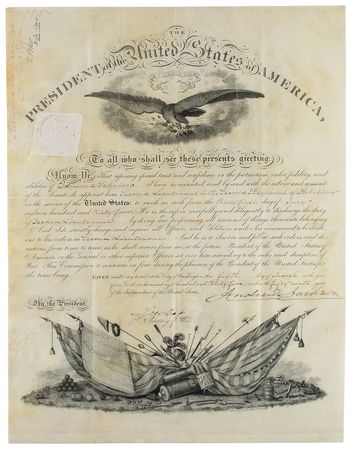 THE
PRESIDENT of the United States of AMERICA,
To all who shall see these presents greeting:
Know Ye, That reposing special trust and confidence in the patriotism, valor, fidelity, and
abilities of I have nominated, and by and with the advice and consent
of the Senate, do appoint him Second Lieutenant in the Regiment of Artillery
in the service of the United States: to rank as such from the First day of July
eighteen hundred and thirty four. He is therefore carefully and diligently to discharge the duty
of Second Lieutenant by doing and performing all manner of things thereunto belonging.
And I do strictly charge, and require all Officers and Soldiers under his command to be obedi-
ent to his orders as Second Lieutenant. And he is to observe and follow such orders and di-
rections from time to time, as he shall receive from me, or the future President of the United States of
America, or the General or other superior Officers set over him according to the rules and discipline of
War. This Commission to continue in force during the pleasure of the President of the United States, for
the time being.
GIVEN under my hand at the City of Washington this day of March in the year
of our Lord one thousand eight hundred and thirty and in the year
of the Independence of the United States.
By the President,
Andrew Jackson
Secretary of War.